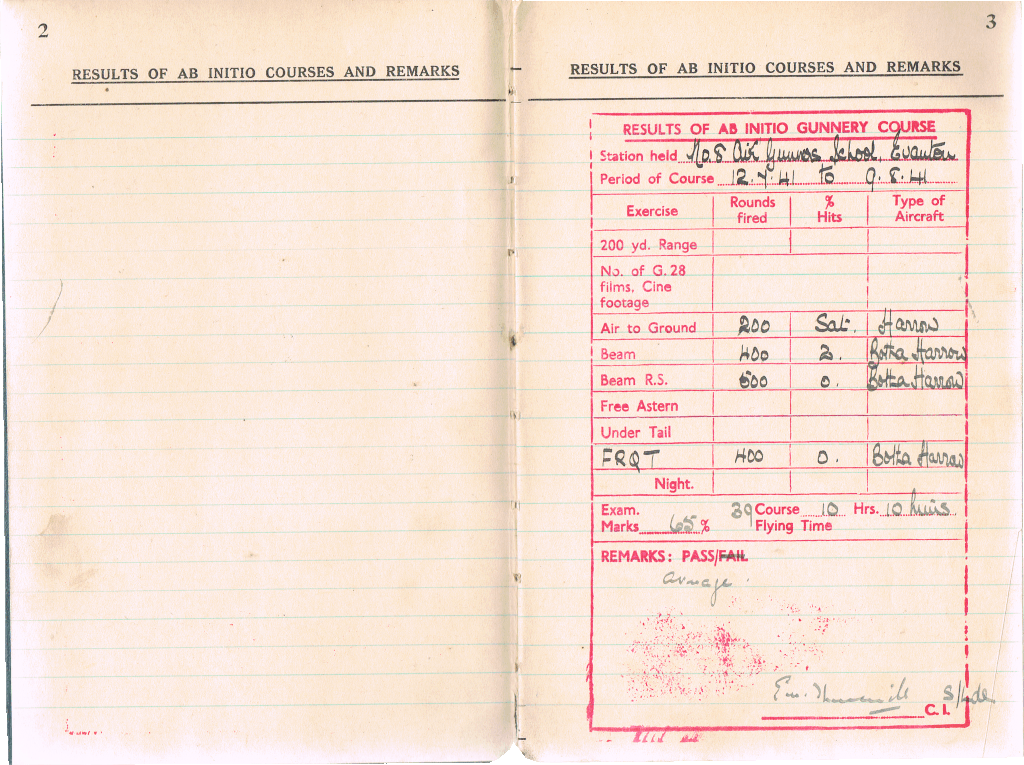 2
RESULTS OF AB INITIO COURSES AND REMARKS
3
RESULTS OF AB INITIO COURSES AND REMARKS
RESULTS OF AB INITIO GUNNERY COURSE
Station held No.8 Air Gunners School, Evanton
Period of Course 12.7.41 to 9.8.41
Exercise Rounds fired % Hits Type of Aircraft
200 yd. Range
No. of G.28
films, Cine
footage
Air to Ground 200 Sat. Harrow
Beam 400 2. Botha Harrow
Beam R.S. 500 0. Botha Harrow
Free Astern
Under Tail
FRQT 400 0. Botha Harrow
Night.
Exam. 39 Course 10 Hrs. 10 mins
Marks 65 % Flying Time
REMARKS: PASS/FAIL
average.
S/Ldr.
C.I.